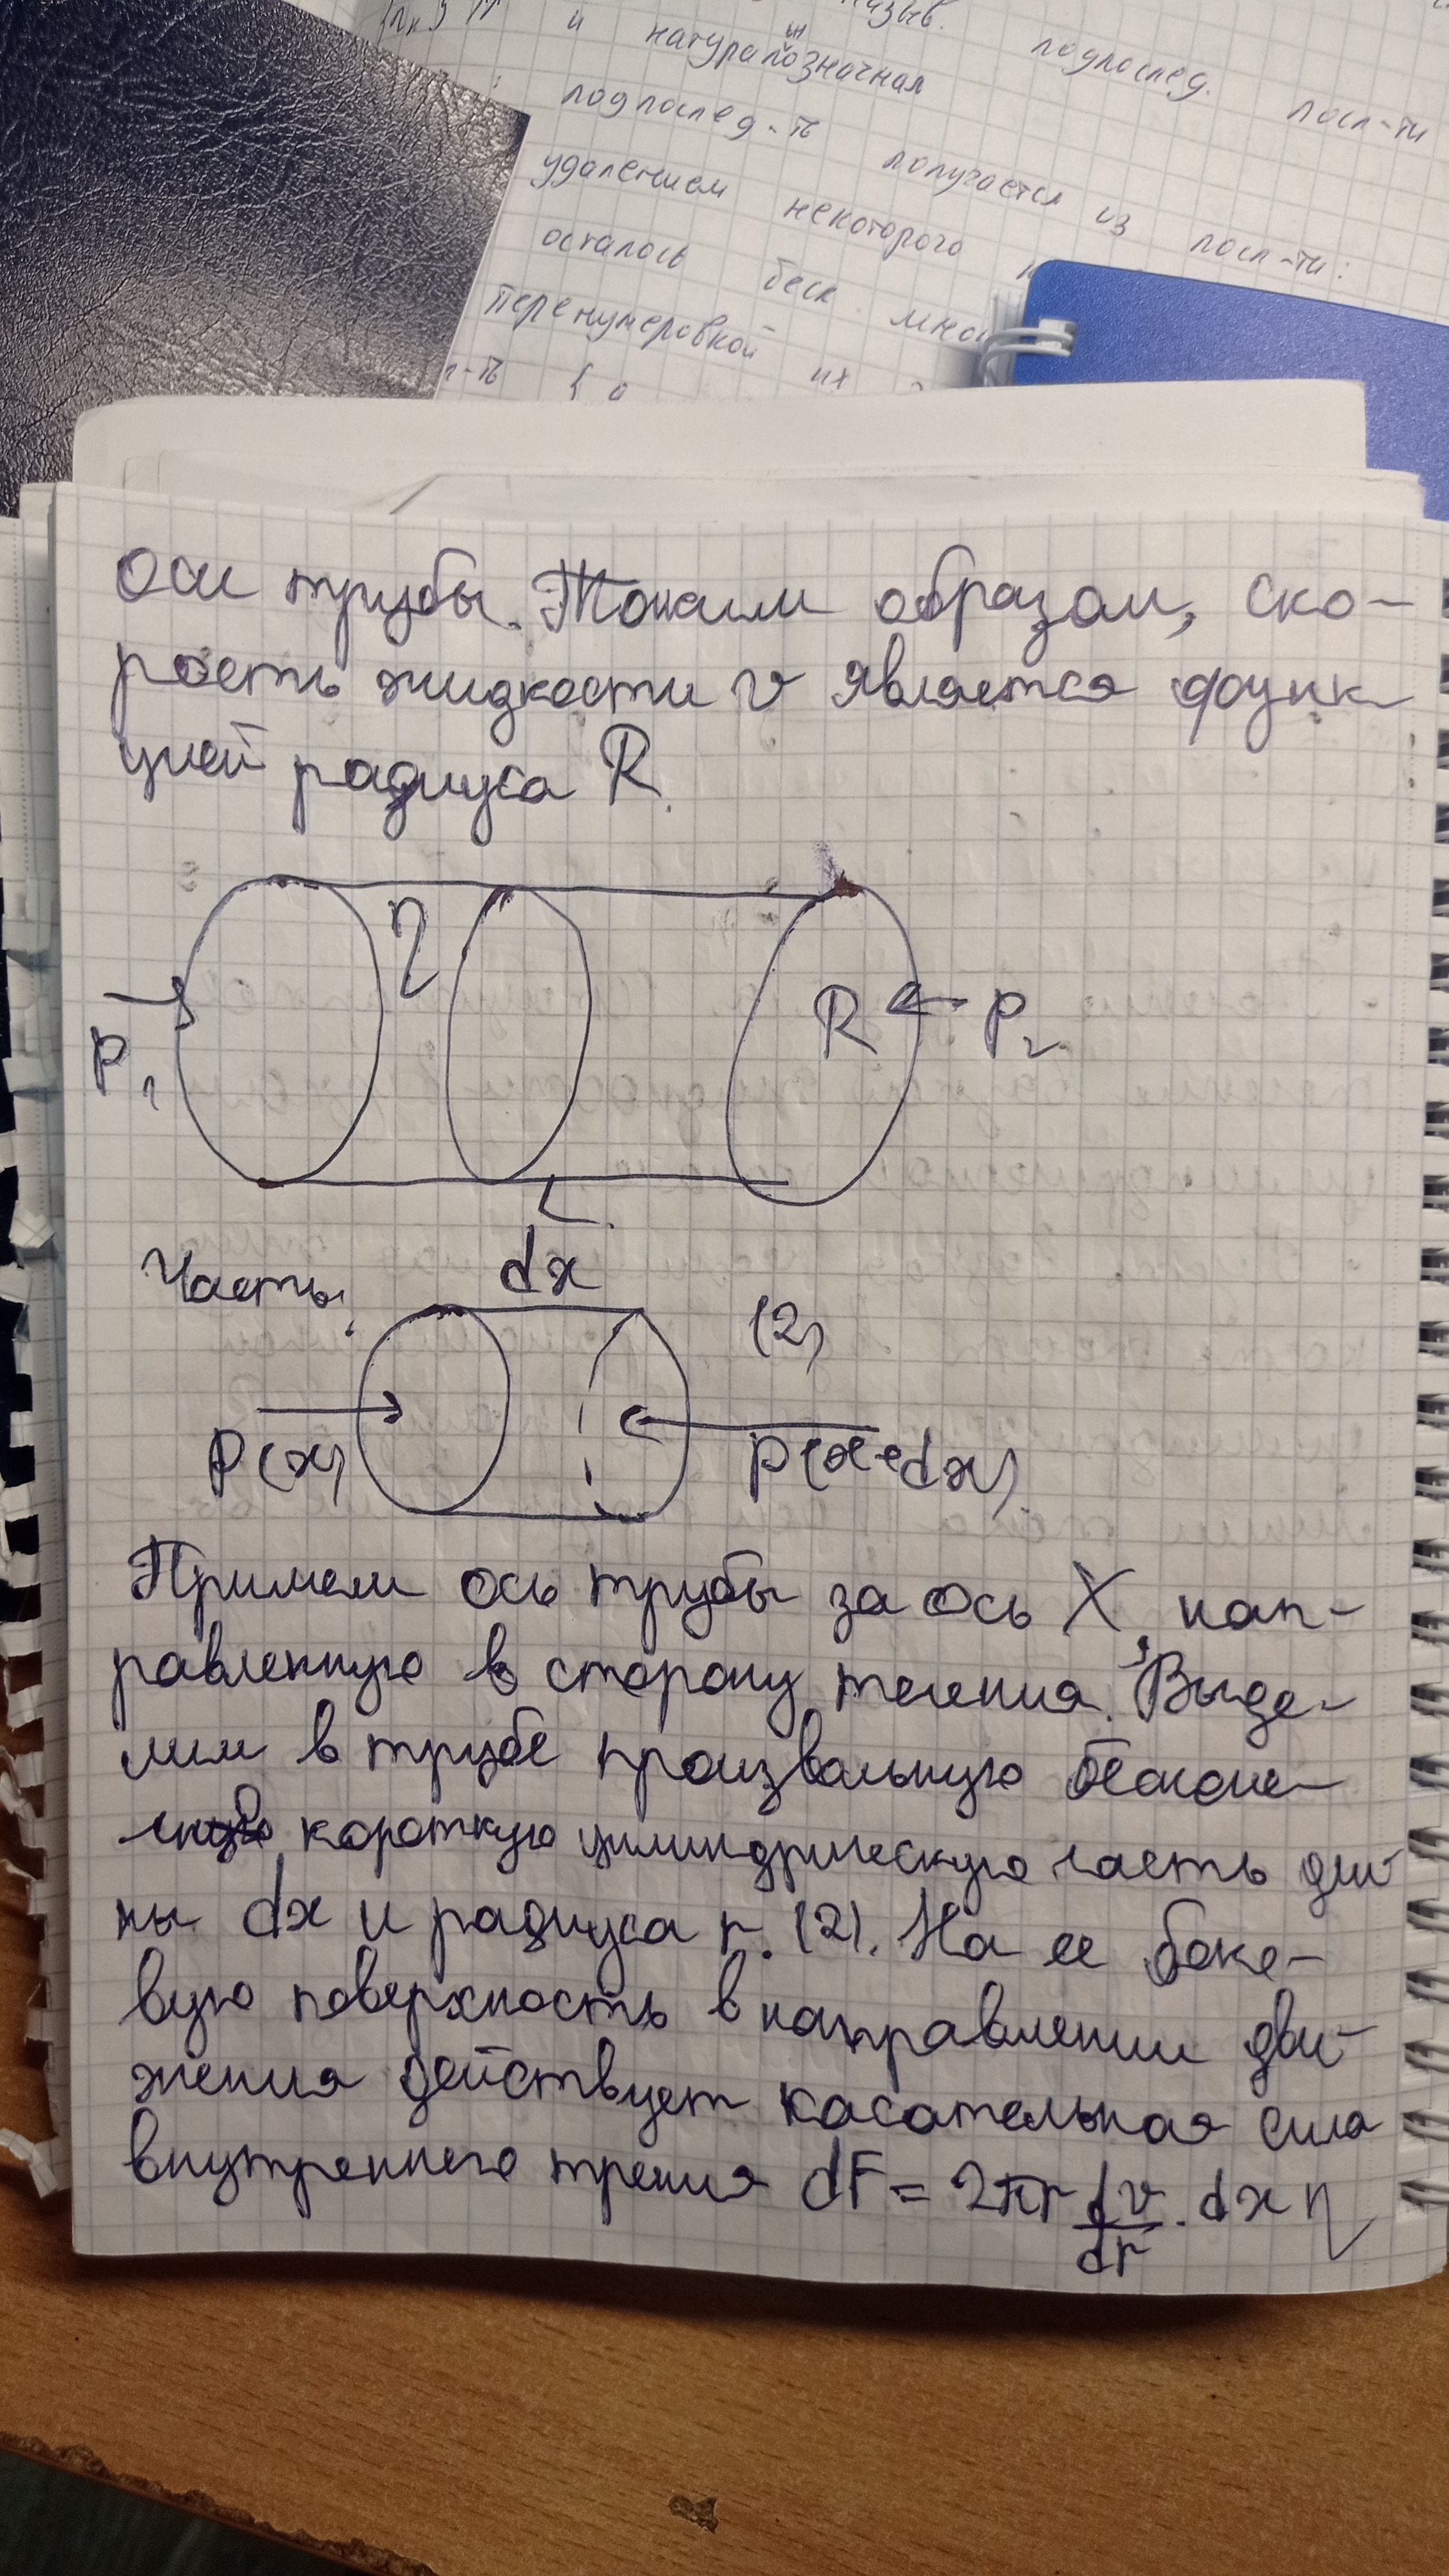 назыв. подпослед. посл-ти
и натуральнозначная
подпослед-ть получается из посл-ти:
удалением некоторого
осталось беск. мно
перенумеровкой их
л-ть {a
оси трубы. Таким образом, ско-
рость жидкости v является функ
цией радиуса R.
η
P₁
R
P₂
L
Часть:
dx
(2)
P(x)
P(x+dx).
Примем ось трубы за ось X, нап-
равленную в сторону течения. Выде-
лим в трубе произвольную бесконе-
короткую цилиндрическую часть дли
ны dx и радиуса r. (2). На ее боко-
вую поверхность в направлении дви-
жения действует касательная сила
внутреннего трения dF = 2πr dv/dr · dx η